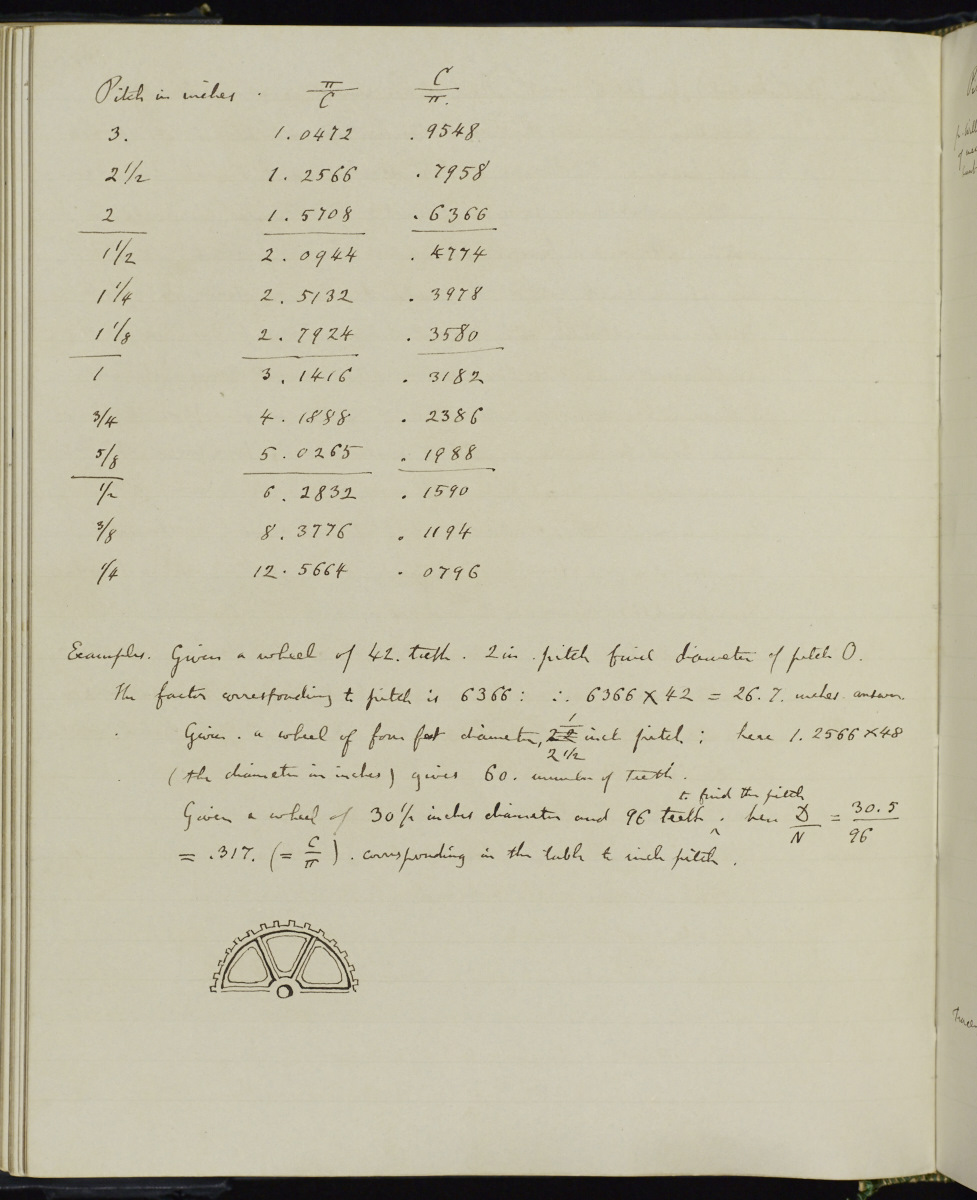 Pitch in inches . π/C C/π.
3. 1.0472 .9548
2 1/2 1.2566 .7958
2 1.5708 .6366
1 1/2 2.0944 .4774
1 1/4 2.5132 .3978
1 1/8 2.7924 .3580
1 3.1416 .3182
3/4 4.1888 .2386
5/8 5.0265 .1988
1/2 6.2832 .1590
3/8 8.3776 .1194
1/4 12.5664 .0796
Examples. Given a wheel of 42. teeth. 2 in. pitch find diameter of pitch O.
The factor corresponding to pitch is 6366: ∴ 6366 × 42 = 26.7. inches answer.
Given. a wheel of four feet diameter, 2 1/2 inch pitch; here 1.2566 × 48
(the diameter in inches) gives 60. number of teeth.
to find the pitch
Given a wheel of 30 1/2 inches diameter and 96 teeth ^. here D/N = 30.5/96
= .317. (= C/π). corresponding in the table to inch pitch.